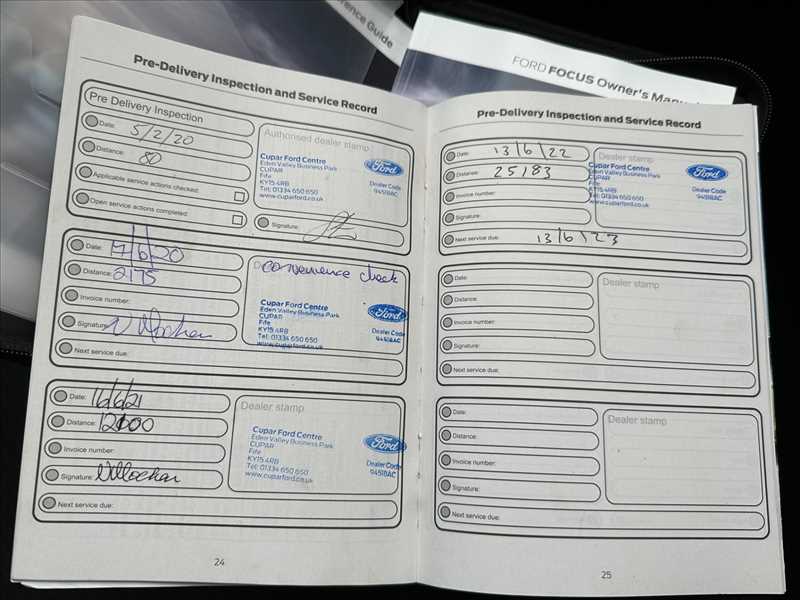 erence Guide
FORD FOCUS Owner's Manual
Pre-Delivery Inspection and Service Record
Pre Delivery Inspection
Date: 5/2/20
Distance: 80
Applicable service actions checked:
Open service actions completed:
Authorised dealer stamp
Cupar Ford Centre
Eden Valley Business Park
CUPAR
Fife
KY15 4RB
Tel: 01334 650 650
www.cuparford.co.uk
Ford
Dealer Code
94518AC
Signature:
Date: 17/6/20
Distance: 2175
Invoice number:
Signature:
Next service due:
convenience check
Cupar Ford Centre
Eden Valley Business Park
CUPAR
Fife
KY15 4RB
Tel: 01334 650 650
www.cuparford.co.uk
Ford
Dealer Code
94518AC
Date: 16/6/21
Distance: 12000
Invoice number:
Signature:
Next service due:
Dealer stamp
Cupar Ford Centre
Eden Valley Business Park
CUPAR
Fife
KY15 4RB
Tel: 01334 650 650
www.cuparford.co.uk
Ford
Dealer Code
94518AC
24
Pre-Delivery Inspection and Service Record
Date: 13/6/22
Distance: 25183
Invoice number:
Signature:
Next service due: 13/6/23
Dealer stamp
Cupar Ford Centre
Eden Valley Business Park
CUPAR
Fife
KY15 4RB
Tel: 01334 650 650
www.cuparford.co.uk
Ford
Dealer Code
94518AC
Date:
Distance:
Invoice number:
Signature:
Next service due:
Dealer stamp
Date:
Distance:
Invoice number:
Signature:
Next service due:
Dealer stamp
25